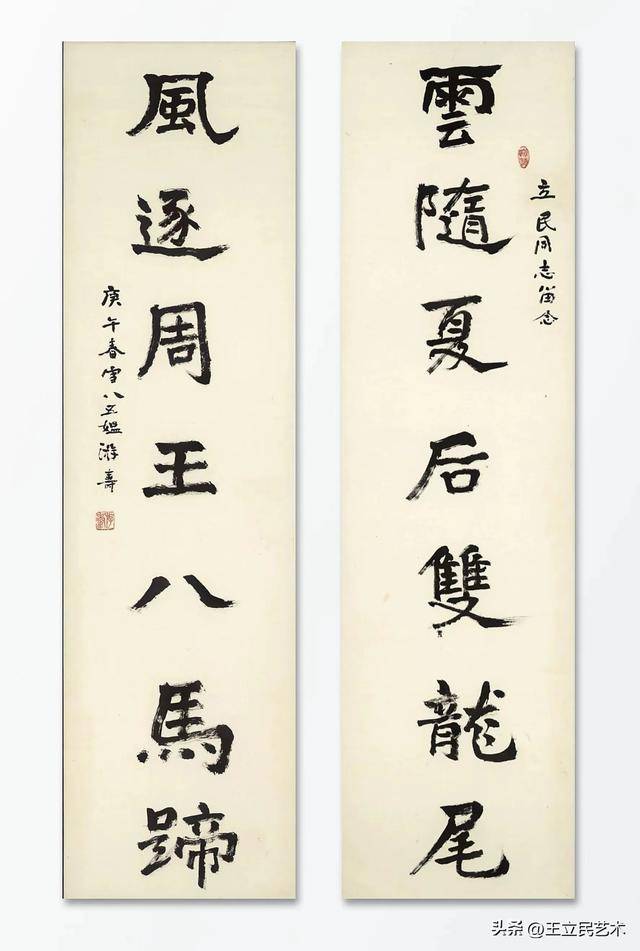 雲隨夏后雙龍尾
立民同志留念
風逐周王八馬蹄
庚午春雪八五媪游壽
头条@王立民艺术